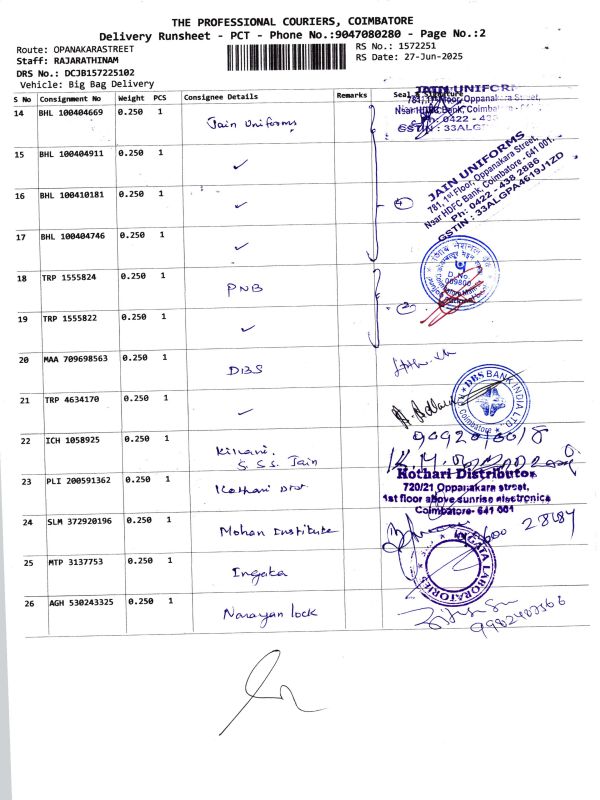 THE PROFESSIONAL COURIERS, COIMBATORE
Delivery Runsheet - PCT - Phone No.:9047080280 - Page No.:2
Route: OPANAKARASTREET
Staff: RAJARATHINAM
DRS No.: DCJB157225102
Vehicle: Big Bag Delivery
RS No.: 1572251
RS Date: 27-Jun-2025
S No Consignment No Weight PCS Consignee Details Remarks Seal & Signature
14 BHL 100404669 0.250 1 Jain Uniforms
15 BHL 100404911 0.250 1 ✓
16 BHL 100410181 0.250 1 ✓
17 BHL 100404746 0.250 1 ✓
18 TRP 1555824 0.250 1 PNB
19 TRP 1555822 0.250 1 ✓
20 MAA 709698563 0.250 1 DBS
21 TRP 4634170 0.250 1 ✓
22 ICH 1058925 0.250 1 S.S.S. Jain
23 PLI 200591362 0.250 1 Kothari Dist
24 SLM 372920196 0.250 1 Mohan Institute
25 MTP 3137753 0.250 1 Ingata
26 AGH 530243325 0.250 1 Narayan lock
JAIN UNIFORM
781, 1st Floor, Oppanakara Street,
Near HDFC Bank, Coimbatore
Ph: 0422 - 438
GSTIN : 33ALG
JAIN UNIFORMS
781, 1st Floor, Oppanakara Street,
Near HDFC Bank, Coimbatore - 641 001.
Ph: 0422 - 438 2886
GSTIN : 33ALGPA4619J1ZD
4
2
D.No.
DBS BANK INDIA LTD.
Coimbatore
Kothari Distributor
720/21 Oppanakara street,
1st floor above sunrise electronics
Coimbatore- 641 001
INGATA LABORATORIES